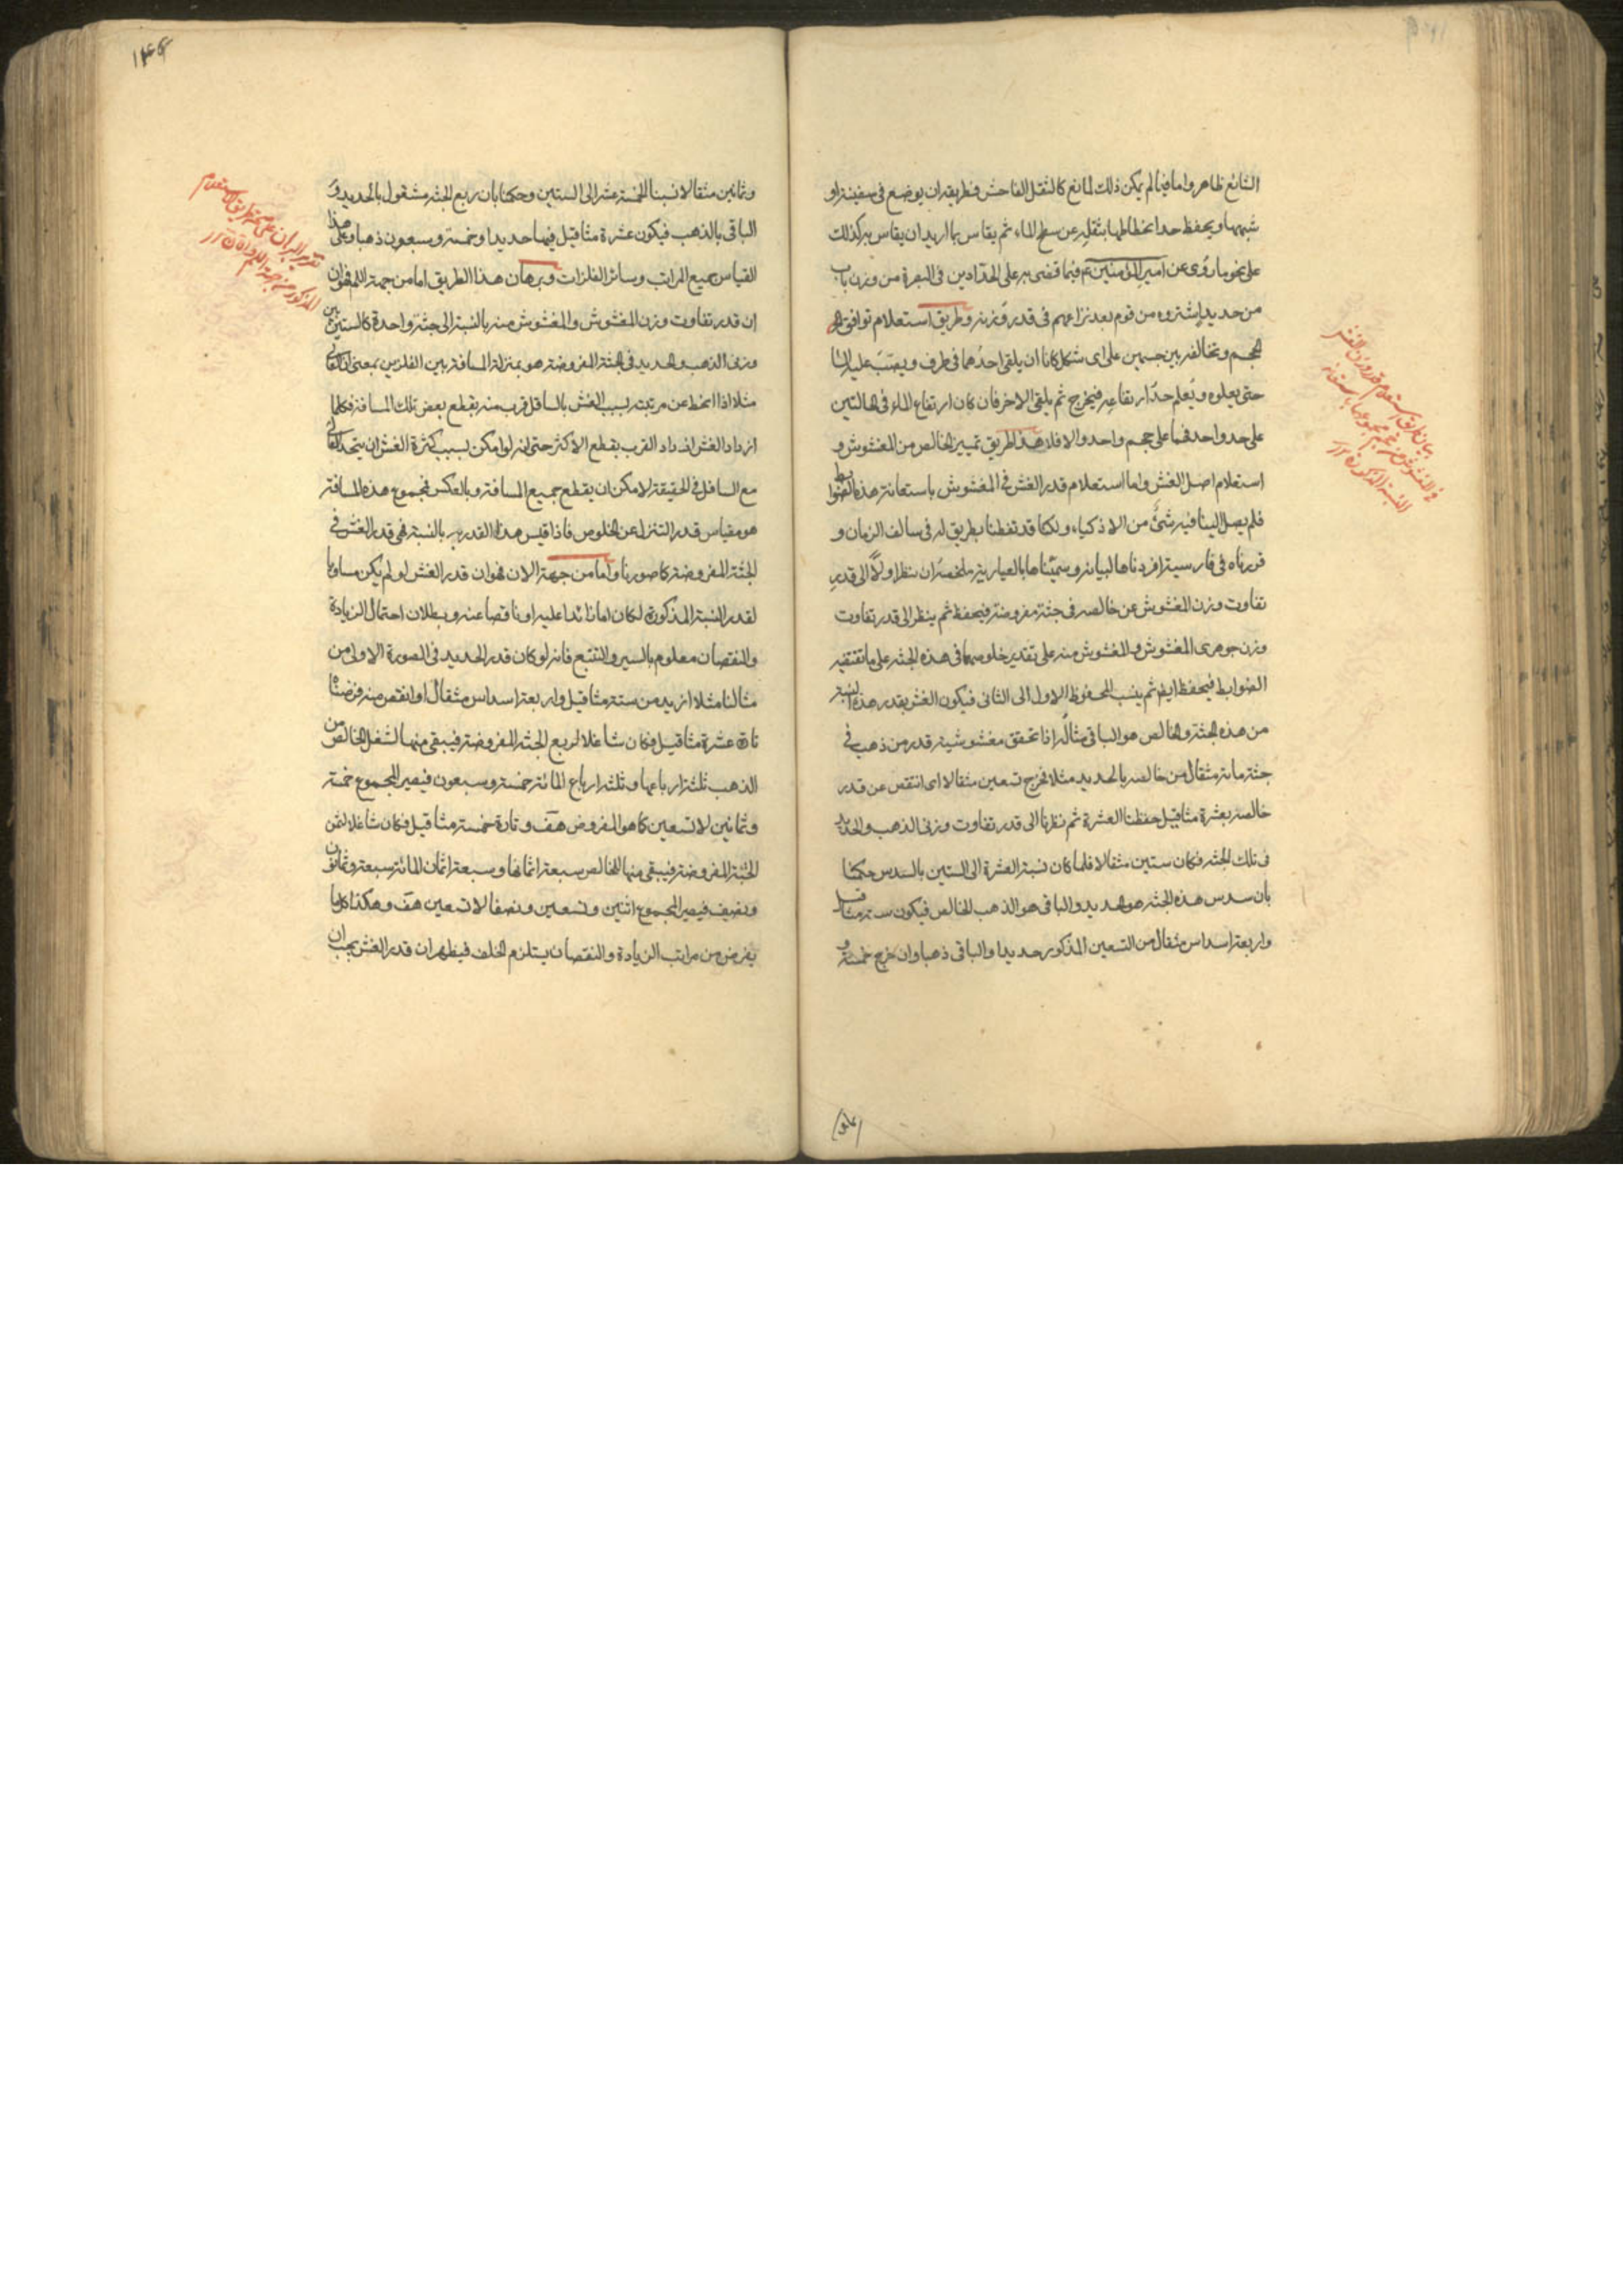 الشائع ظاهر واما فيما لم يمكن ذلك لمانع كالثقل الفاحش فطريقه ان يوضع فى سفينة او
شبهها ويحفظ حد انحطاطها بثقله عن سطح الماء ثم يقاس بما اريد ان يقاس به كذلك
على نحو ما روى عن امير المؤمنين ع فيما قضى به على الحدادين فى البصرة من وزن باب
من حديد اشتروه من قوم بعد نزاعهم فى قدر وزنه وطريق استعلام توافق
الحجم وتخالفه بين جسمين على اى شكل كانا ان يلقى احدهما فى ظرف ويصب عليه الماء
حتى يعلوه ويعلم حد ارتفاعه فيخرج ثم يلقى الاخر فان كان ارتفاع الماء فى الحالتين
على حد واحد فهما على حجم واحد والا فلا هذا طريق تمييز الخالص من المغشوش و
استعلام اصل الغش واما استعلام قدر الغش فى المغشوش باستعانة هذه الضوابط
فلم يصل الينا فيه شئ من الاذكياء ولكنا قد تفطنا بطريق له فى سالف الزمان و
قررناه فى فارسية افردناها لبيانه وسميناها بالعيارية ملخصه ان ينظر اولا الى قدر
تفاوت وزن المغشوش عن خالصه فى جثة مفروضة فيحفظ ثم ينظر الى قدر تفاوت
وزن جوهرى المغشوش والمغشوش منه على تقدير خلوصهما فى هذه الجثة على ما تقتضيه
الضوابط فيحفظ ايضا ثم ينسب المحفوظ الاول الى الثانى فيكون الغش بقدر هذه النسبة
من هذه الجثة والخالص هو الباقى مثاله اذا تحقق مغشوشية قدر من ذهب فى
جثة مائة مثقال من خالصه بالحديد مثلا فخرج تسعين مثقالا اى انتقص عن قدر
خالصه بعشرة مثاقيل حفظنا العشرة ثم نظرنا الى قدر تفاوت وزنى الذهب والحديد
فى تلك الجثة فكان ستين مثقالا فلما كان نسبة العشرة الى الستين بالسدس حكمنا
بان سدس هذه الجثة هو الحديد والباقى هو الذهب الخالص فيكون ستة مثاقيل
واربعة اسداس مثقال من التسعين المذكور حديدا والباقى ذهبا وان خرج خمسة و
بيان طريق استعلام قدر وزن الغش
١٤٤
وثمانين مثقالا نسبنا الخمسة عشر الى الستين وحكمنا بان ربع الجثة مشغول بالحديد و
الباقى بالذهب فيكون عشرة مثاقيل فيها حديدا وخمسة وسبعون ذهبا وعلى هذا
القياس جميع المراتب وسائر الفلزات وبرهان هذا الطريق اما من جهة اللم فهو ان
ان قدر تفاوت وزن المغشوش والمغشوش منه بالنسبة الى جثة واحدة كالستين بين
وزنى الذهب والحديد فى الجثة المفروضة هو بمنزلة المسافة بين الفلزين بمعنى ان العالى
مثلا اذا انحط عن مرتبته بسبب الغش بالسافل قرب منه بقطع بعض تلك المسافة فكلما
ازداد الغش ازداد القرب بقطع الاكثر حتى انه لو امكن بسبب كثرة الغش ان يتحد العالى
مع السافل فى الحقيقة لامكن ان يقطع جميع المسافة وبالعكس فمجموع هذه المسافة
هو مقياس قدر التنزل عن الخلوص فاذا قيس هذا القدر به بالنسبة فهى قدر الغش فى
الجثة المفروضة كما صورنا واما من جهة الان فهو ان قدر الغش لو لم يكن مساويا
لقدر النسبة المذكورة لكان اما زائدا عليه او ناقصا عنه وبطلان احتمال الزيادة
والنقصان معلوم بالسير والتتبع فانه لو كان قدر الحديد فى الصورة الاولى من
مثالنا مثلا ازيد من ستة مثاقيل واربعة اسداس مثقال او انقص منه فرضناه
تارة عشرة مثاقيل فكان شاغلا لربع الجثة المفروضة فيبقى منها لشغل الخالص من
الذهب ثلثة ارباعها وثلثة ارباع المائة خمسة وسبعون فيصير المجموع خمسة
وثمانين لا تسعين كما هو المفروض هف وتارة خمسة مثاقيل فكان شاغلا لثمن
الجثة المفروضة فيبقى منها للخالص سبعة اثمانها وسبعة اثمان المائة سبعة وثمانون
ونصف فيصير المجموع اثنين وتسعين ونصفا لا تسعين هف وهكذا كلما
يفرض من مراتب الزيادة والنقصان يستلزم الخلف فيظهر ان قدر الغش يجب ان
تقرير البرهان على صحة طريق الاستعلام